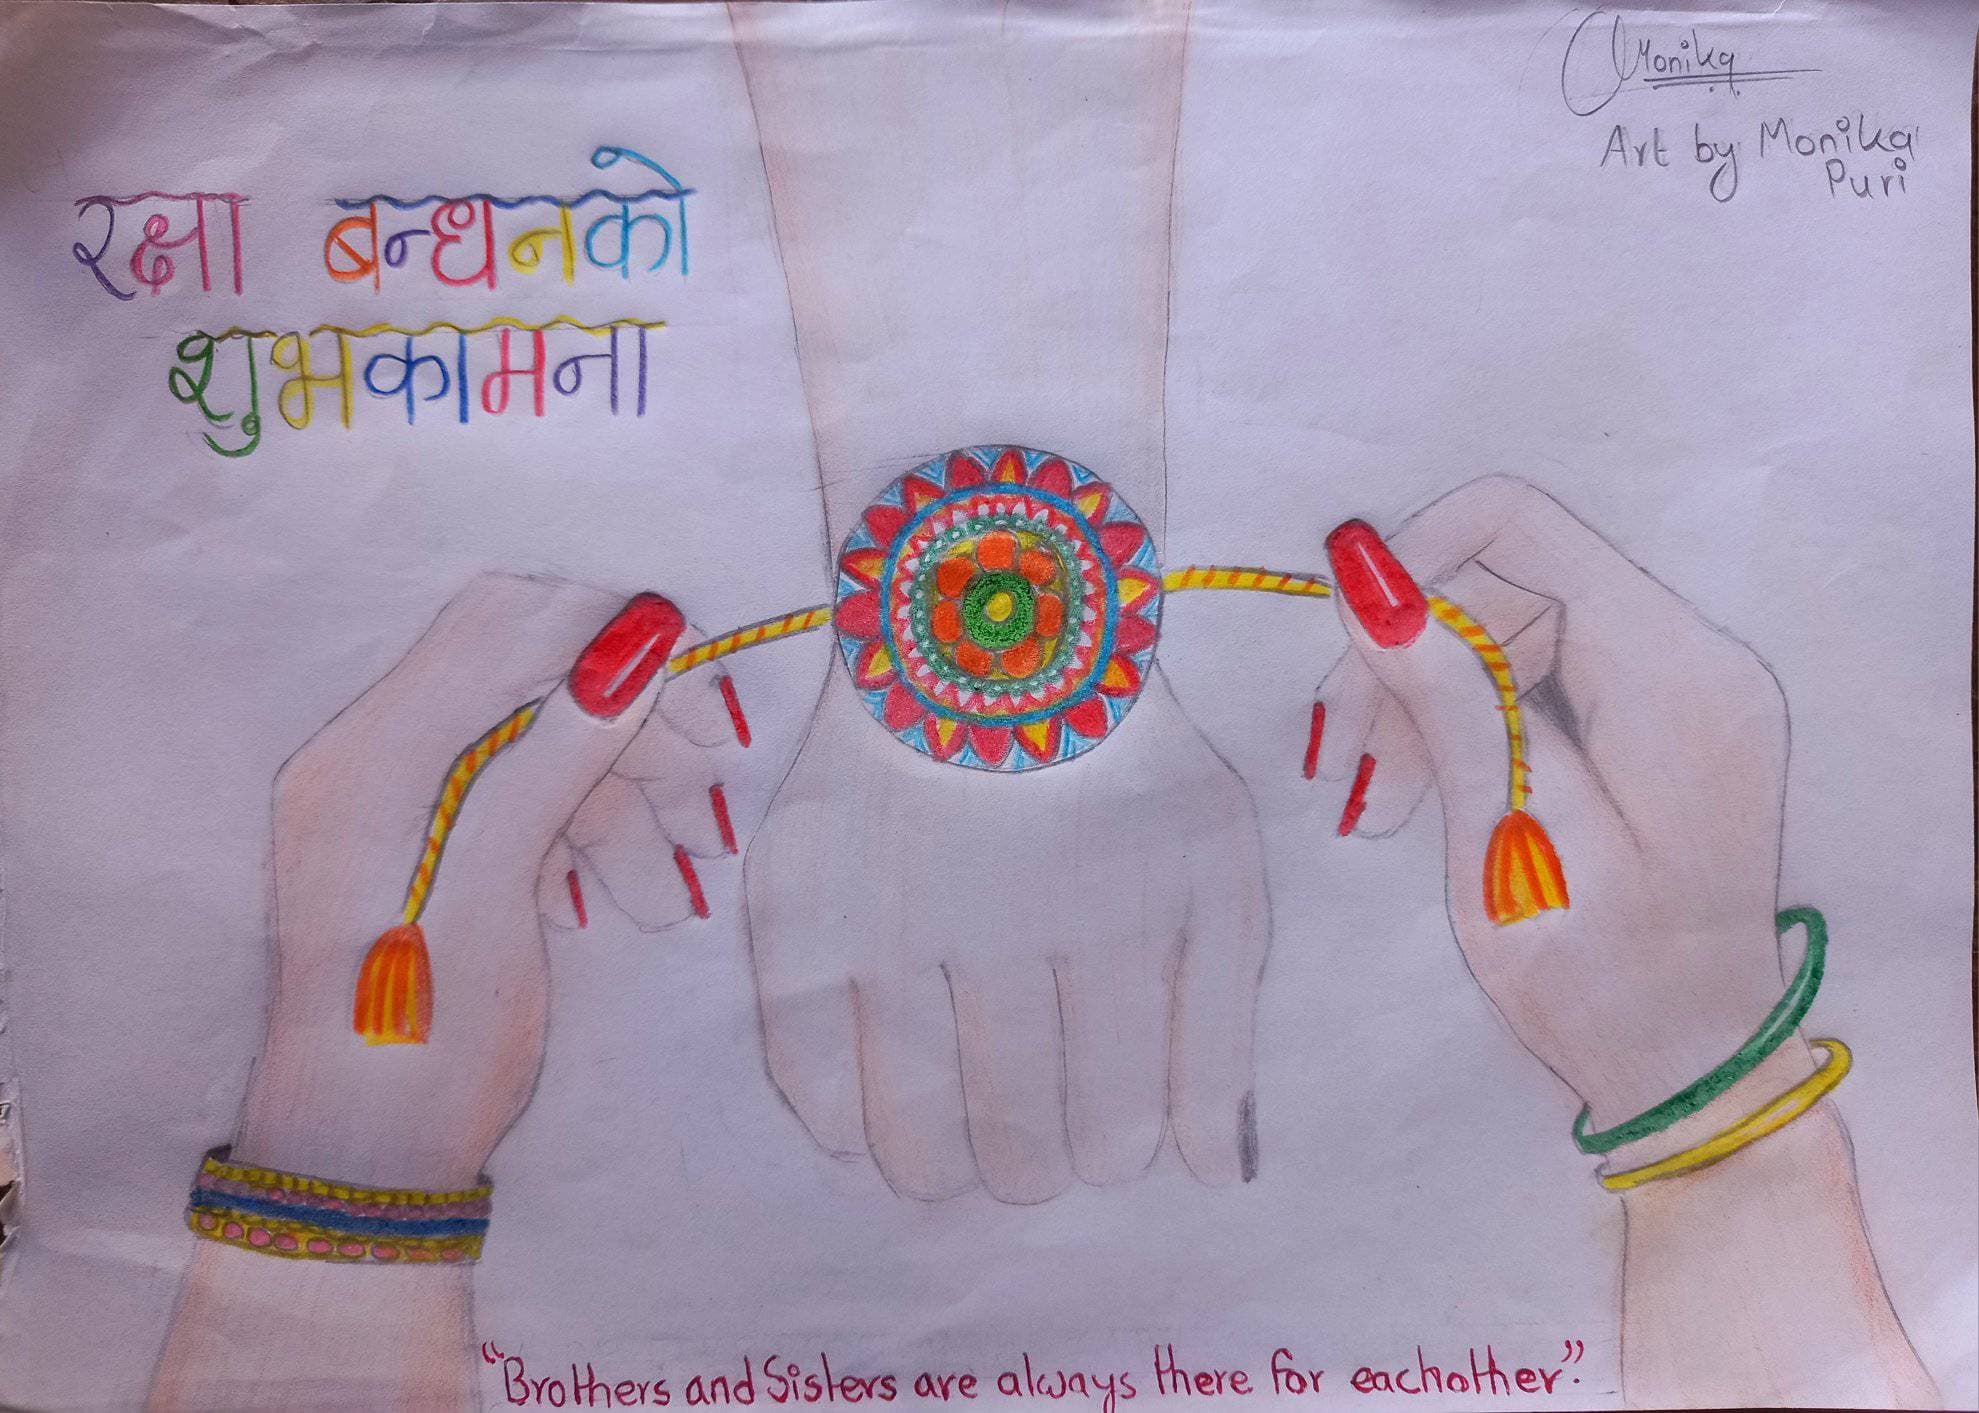 Monika
Art by Monika
Puri
रक्षा बन्धनको
शुभकामना
"Brothers and Sisters are always there for eachother".